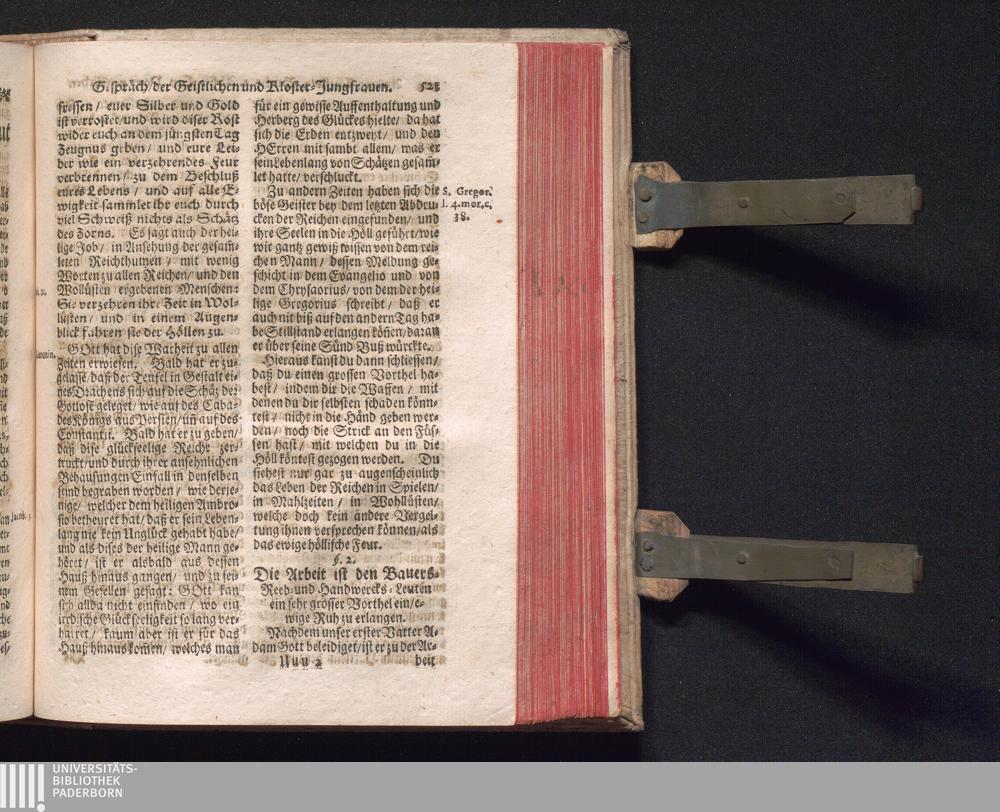 Gespräch/der Geistlichen und Kloster-Jungfrauen. 523
fressen / euer Silber und Gold
ist verrostet/und wird diser Rost
wider euch an dem jüngsten Tag
Zeugnus geben/ und eure Lei-
ber wie ein verzehrendes Feur
verbrennen/ zu dem Beschluß
eures Lebens / und auf alle E-
wigkeit samlet ihr euch durch
viel Schweiß nichts als Schätz
des Zorns. Es sagt auch der hei-
lige Job/ in Ansehung der gesam̃-
leten Reichthumen / mit wenig
Worten zu allen Reichen/ und den
Wollüsten ergebenen Menschen:
Sie verzehren ihre Zeit in Wol-
lüsten/ und in einem Augen-
blick fahren sie der Höllen zu.
GOtt hat dise Warheit zu allen
Zeiten erwiesen. Bald hat er zu-
gelassẽ/ daß der Teufel in Gestalt ei-
nes Drachens sich auf die Schätz der
Gotlosẽ geleget/ wie auf des Caba-
des Königs aus Persien/ uñ auf des
Constantii. Bald hat er zu geben/
daß dise glückseelige Reiche zer-
truckt/und durch ihrer ansehnlichen
Behausungen Einfall in denselben
seind begraben worden/ wie derje-
nige/ welcher dem heiligen Ambro-
sio betheuret hat/ daß er sein Leben-
lang nie kein Unglück gehabt habe/
und als dises der heilige Mann ge-
höret/ ist er alsbald aus dessen
Hauß hinaus gangen/ und zu sei-
nem Gesellen gesagt: GOtt kan
sich allda nicht einfinden/ wo ein
irrdische Glückseeligkeit so lang ver-
harret/ kaum aber ist er für das
Hauß hinaus kom̃en/ welches man
für ein gewisse Auffenthaltung und
Herberg des Glückes hielte/ da hat
sich die Erden entzweyt/ und den
HErren mit sambt allem/ was er
sein Lebenlang von Schätzen gesam̃-
let hatte/ verschluckt.
Zu andern Zeiten haben sich die
böse Geister bey dem letzten Abdru-
cken der Reichen eingefunden/ und
ihre Seelen in die Höll geführt/wie
wir gantz gewiß wissen von dem rei-
chen Mann/ dessen Meldung ge-
schicht in dem Evangelio und von
dem Chrysaorius/ von dem der hei-
lige Gregorius schreibt/ daß er
auch nit biß auf den andern Tag ha-
be Stillstand erlangen kön̄en/ daran
er über seine Sünd Buß würckte.
Hieraus kanst du dann schliessen/
daß du einen grossen Vorthel ha-
best/ indem dir die Waffen / mit
denen du dir selbsten schaden könn-
test/ nicht in die Händ geben wer-
den/ noch die Strick an den Füs-
sen hast/ mit welchen du in die
Höll köntest gezogen werden. Du
siehest nur gar zu augenscheinlich
das Leben der Reichen in Spielen/
in Mahlzeiten/ in Wohllüsten/
welche doch kein andere Vergel-
tung ihnen versprechen können/als
das ewige höllische Feur.
§. 2.
Die Arbeit ist den Bauers-
Reeb-und Handwercks-Leuten
ein sehr grosser Vorthel ein/e-
wige Ruh zu erlangen.
Nachdem unser erster Vatter A-
dam Gott beleidiget/ist er zu der Ar-
Uuu 2 beit
S. Gregor.
l. 4. mor. c.
38.
UNIVERSITÄTS-
BIBLIOTHEK
PADERBORN